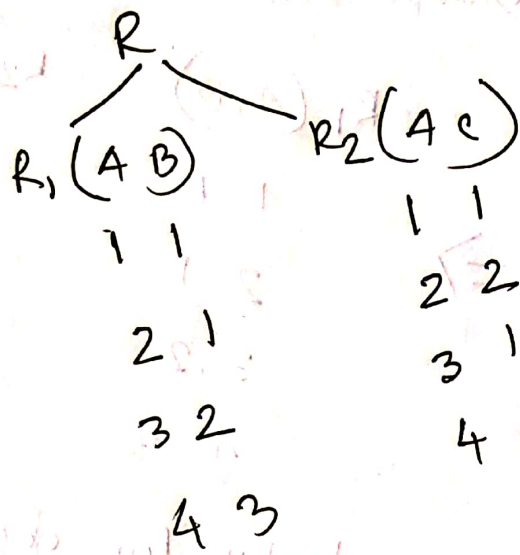 R
R₁ (A B)
1 1
2 1
3 2
4 3
R₂ (A C)
1 1
2 2
3 1
4